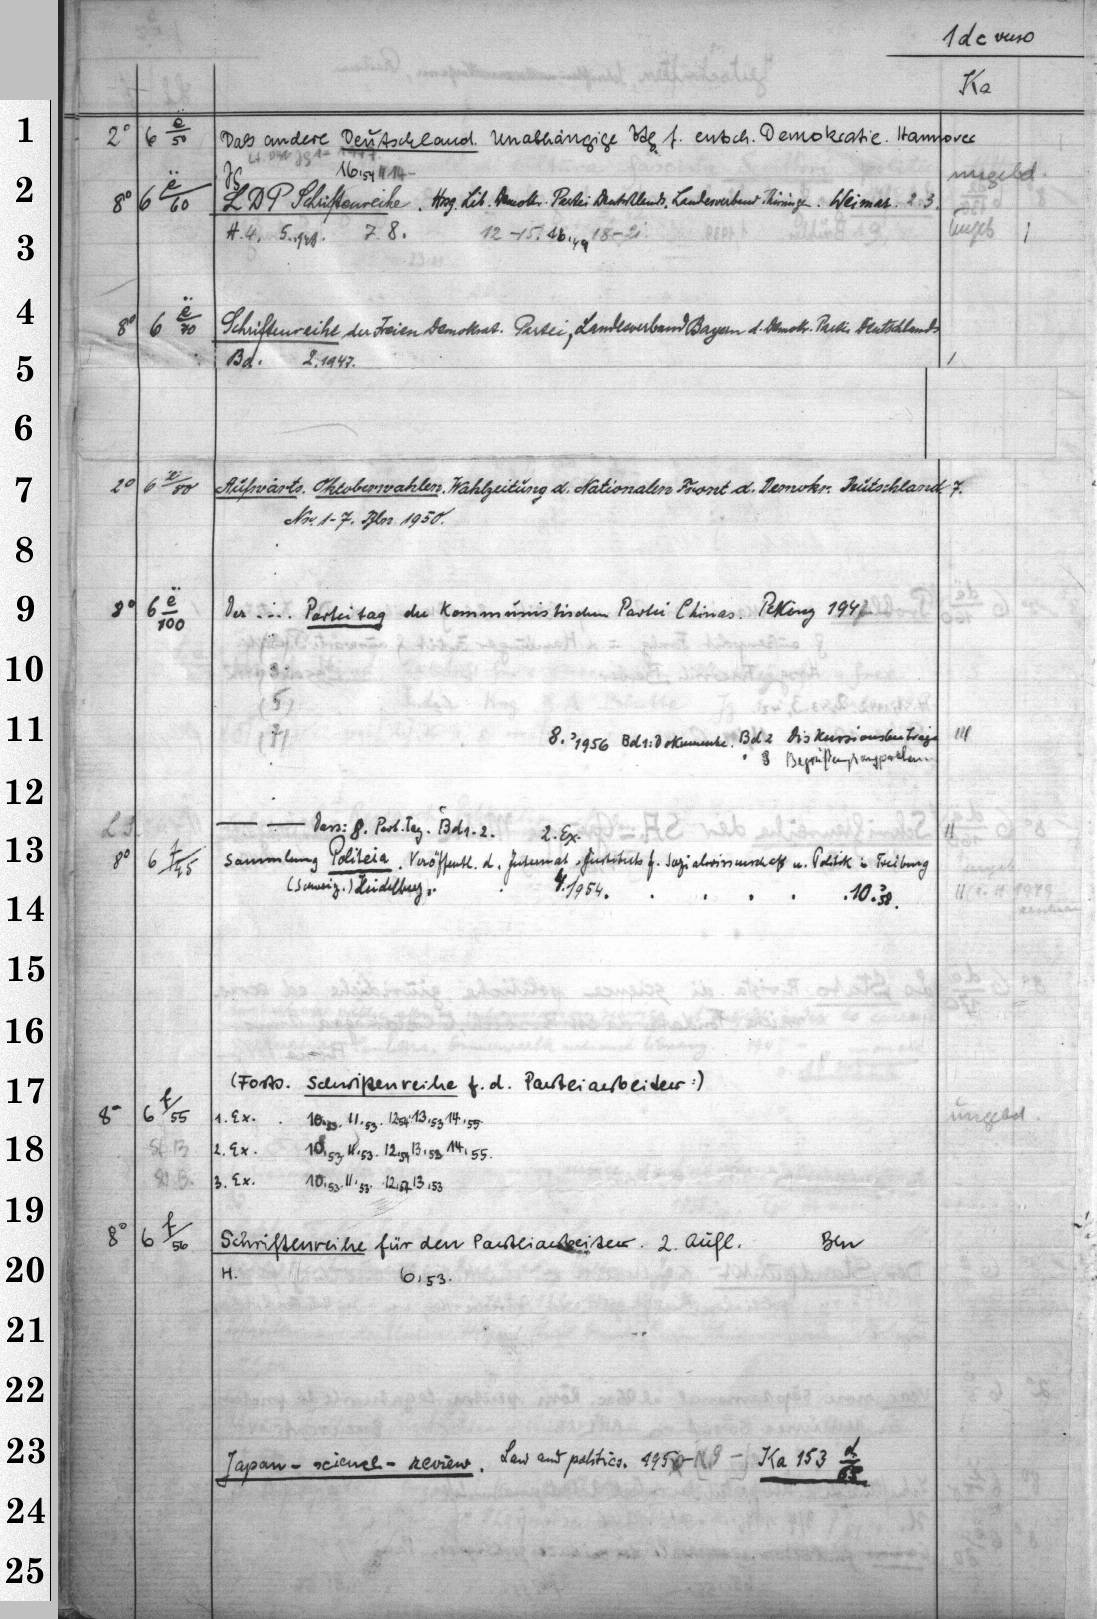 1 d c verso
Ka
1 2° 6 ë/50 Das andere Deutschland. Unabhängige Ztg. f. entsch. Demokratie. Hannover
Jg 16.54 ungebd.
2 8° 6 ë/60 LDP Schriftenreihe. Hrsg. Lib. Demokr. Partei Deutschlands. Landesverband Thüringen. Weimar. 2. 3.
3 H. 4. 5. 7. 8. 12-15. 16.49 18-21. ungeb /
4 8° 6 ë/70 Schriftenreihe der Freien Demokrat. Partei, Landesverband Bayern d. Demokr. Partei Deutschlands
5 Bd. 2.1947. /
6
7 2° 6 ë/80 Aufwärts. Oktoberwahlen. Wahlzeitung d. Nationalen Front d. Demokr. Deutschland 7.
Nr. 1-7. Bln 1950.
8
9 8° 6 ë/100 Der .... Parteitag der Kommunistischen Partei Chinas. Peking
10 3.
(5)
11 (7) 8. 1956 Bd 1: Dokumente. Bd 2 Diskussionsbeiträge III
" 3 Begrüßungsansprachen
12
—— —— Dass: 8. Part.Tag. Bd 1-2. 2. Ex. II
13 8° 6 f/45 Sammlung Politeia. Veröffentl. d. Internat. Instituts f. Sozialwissenschaft u. Politik i. Freiburg
14 (Schweiz.) Heidelberg. 4./1954. . . . . . 10.58. II
15
16
17 (Forts. Schriftenreihe f. d. Parteiarbeiter:)
8° 6 f/55 1. Ex. . 10.53. 11.53. 12.54 13.53 14.55 ungebd.
18 2. Ex. 10.53 11.53. 12.54 13.53 14.55.
3. Ex. 10.53. 11.53. 12.54 13.53
19
8° 6 f/56 Schriftenreihe für den Parteiarbeiter. 2. Aufl. Bln
20 H. 6.53.
21
22
23 Japan-science-review. Law and politics. Ka 153
24
25